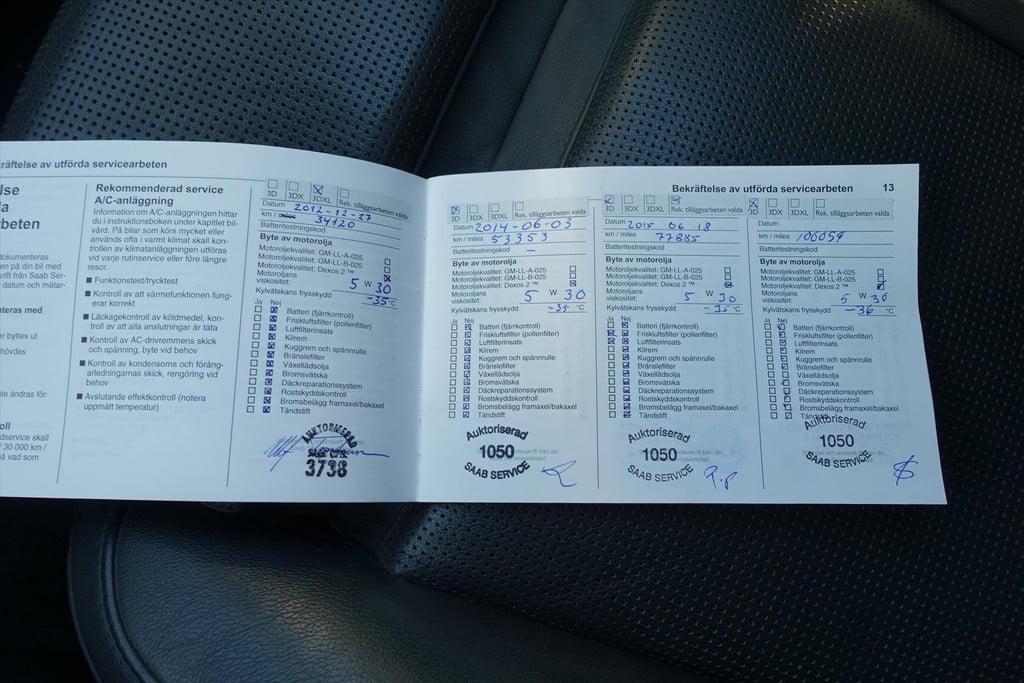 kräftelse av utförda servicearbeten
lse
a
beten
dokumenteras
en på din bil med
krift från Saab Ser-
datum och mätar-
nteras med
byttes ut
hövdes
te ändras för
oll
dservice skall
/ 30 000 km /
å vad som
Rekommenderad service
A/C-anläggning
Information om A/C-anläggningen hittar
du i instruktionsboken under kapitlet bil-
vård. På bilar som körs mycket eller
används ofta i varmt klimat skall kon-
trollen av klimatanläggningen utföras
vid varje rutinservice eller före längre
resor.
Funktionstest/trycktest
Kontroll av att värmefunktionen fung-
erar korrekt
Läckagekontroll av köldmedel, kon-
troll av att alla anslutningar är täta
Kontroll av AC-drivremmens skick
och spänning, byte vid behov
Kontroll av kondensorns och föräng-
arledningarnas skick, rengöring vid
behov
Avslutande effektkontroll (notera
uppmätt temperatur)
3D 3DX 3DXL Rek. tilläggsarbeten valda
Datum 2012-12-27
km / miles 34120
Batteritestningskod
Byte av motorolja
Motoroljekvalitet: GM-LL-A-025
Motoroljekvalitet: GM-LL-B-025
Motoroljekvalitet: Dexos 2 ™
Motoroljans
viskositet: 5 W 30
Kylvätskans fryspunkt -35 °C
Ja Nej
Batteri (fjärrkontroll)
Friskluftsfilter (pollenfilter)
Luftfilterinsats
Kilrem
Kuggrem och spännrulle
Bränslefilter
Växellådsolja
Bromsvätska
Däckreparationssystem
Rostskyddskontroll
Bromsbelägg framaxel/bakaxel
Tändstift
AUKTORISERAD
3738
Bekräftelse av utförda servicearbeten 13
3D 3DX 3DXL Rek. tilläggsarbeten valda
Datum 2014-06-03
km / miles 53353
Batteritestningskod –
Byte av motorolja
Motoroljekvalitet: GM-LL-A-025
Motoroljekvalitet: GM-LL-B-025
Motoroljekvalitet: Dexos 2 ™
Motoroljans
viskositet: 5 W 30
Kylvätskans frysskydd -35 °C
Ja Nej
Batteri (fjärrkontroll)
Friskluftsfilter (pollenfilter)
Luftfilterinsats
Kilrem
Kuggrem och spännrulle
Bränslefilter
Växellådsolja
Bromsvätska
Däckreparationssystem
Rostskyddskontroll
Bromsbelägg framaxel/bakaxel
Tändstift
Auktoriserad
1050
SAAB SERVICE
3D 3DX 3DXL Rek. tilläggsarbeten valda
Datum 2015 06 18
km / miles 77885
Batteritestningskod
Byte av motorolja
Motoroljekvalitet: GM-LL-A-025
Motoroljekvalitet: GM-LL-B-025
Motoroljekvalitet: Dexos 2 ™
Motoroljans
viskositet: 5 W 30
Kylvätskans frysskydd -35 °C
Ja Nej
Batteri (fjärrkontroll)
Friskluftsfilter (pollenfilter)
Luftfilterinsats
Kilrem
Kuggrem och spännrulle
Bränslefilter
Växellådsolja
Bromsvätska
Däckreparationssystem
Rostskyddskontroll
Bromsbelägg framaxel/bakaxel
Tändstift
Auktoriserad
1050
SAAB SERVICE
3D 3DX 3DXL Rek. tilläggsarbeten valda
Datum
km / miles 106059
Batteritestningskod
Byte av motorolja
Motoroljekvalitet: GM-LL-A-025
Motoroljekvalitet: GM-LL-B-025
Motoroljekvalitet: Dexos 2 ™
Motoroljans
viskositet: 5 W 30
Kylvätskans frysskydd -36 °C
Ja Nej
Batteri (fjärrkontroll)
Friskluftsfilter (pollenfilter)
Luftfilterinsats
Kilrem
Kuggrem och spännrulle
Bränslefilter
Växellådsolja
Bromsvätska
Däckreparationssystem
Rostskyddskontroll
Bromsbelägg framaxel/bakaxel
Tändstift
Auktoriserad
1050
SAAB SERVICE